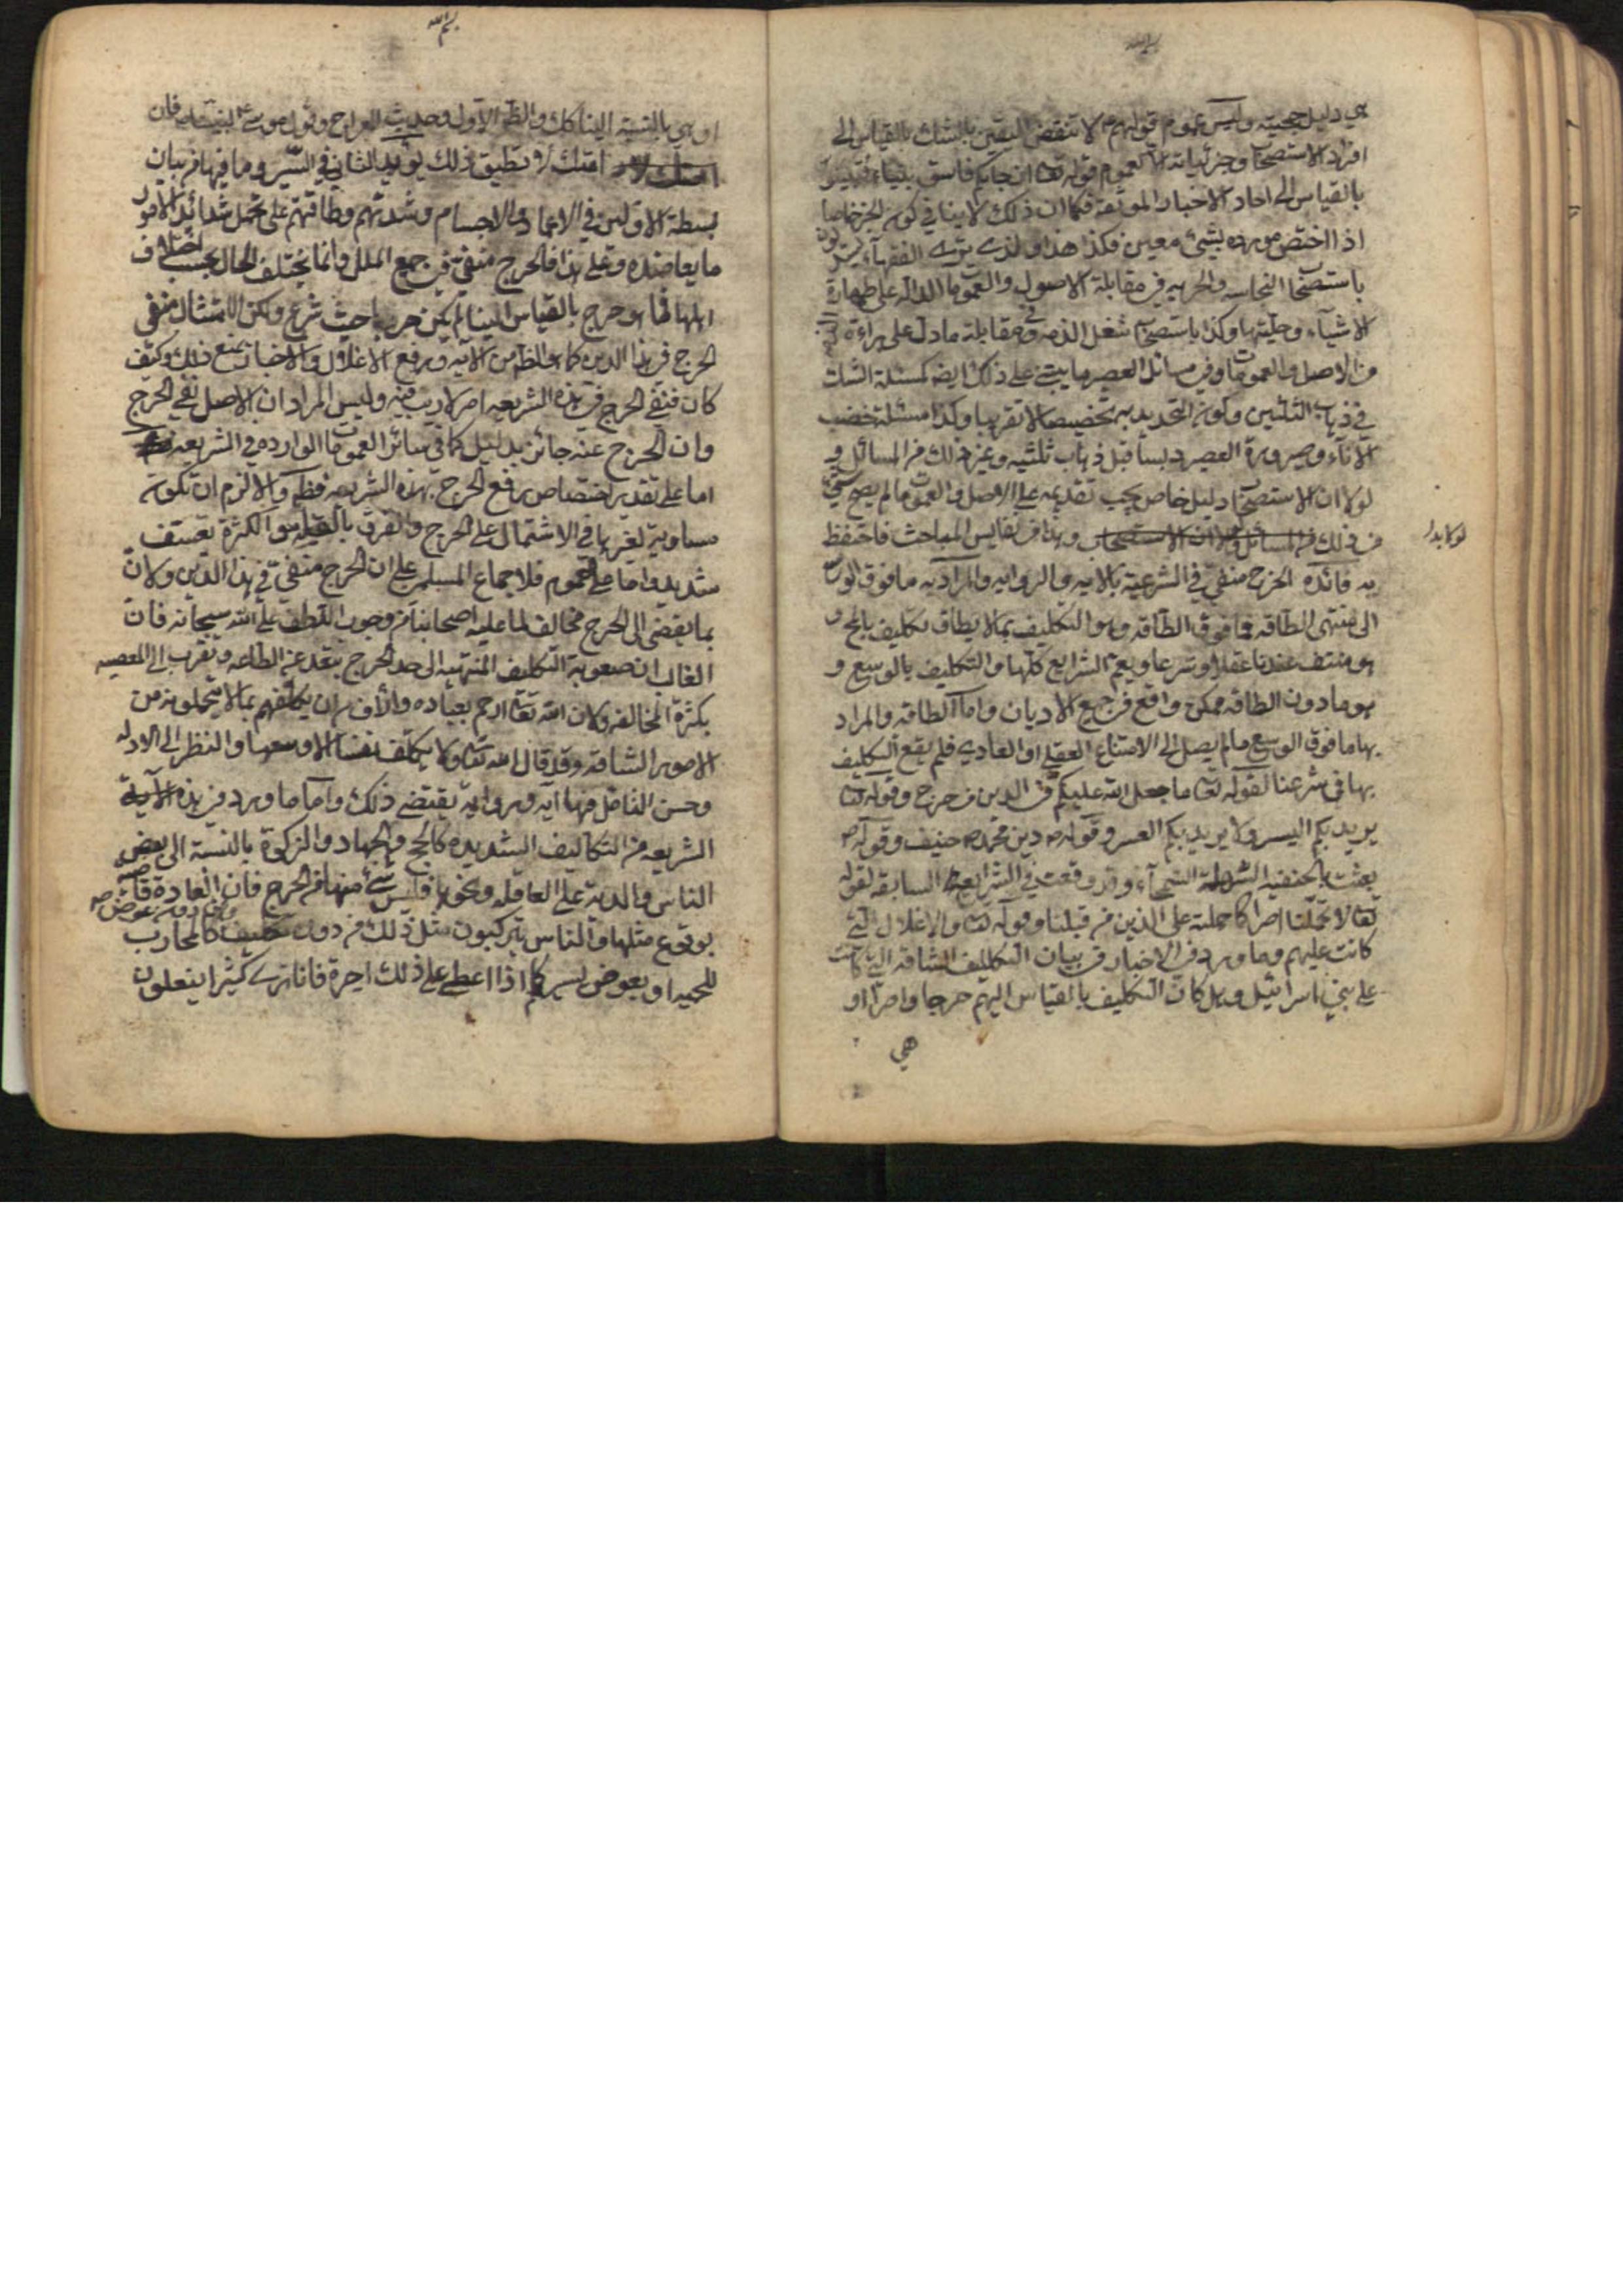 بسم الله
هي دليل حجيته وليس عموم قولهم ع لا تنقض اليقين بالشك بالقياس الى
افراد الاستصحاب وجزئياته الا كعموم قوله تعا ان جاءكم فاسق بنباء فتبينوا
بالقياس الى احاد الاخبار الموثقة فكما ان ذلك لا ينافي كون الخبر خاصا
اذا اختص مورده بشئ معين فكذا هذا ولذى ترى الفقهاء يستدلون
باستصحاب النجاسه والحرمه في مقابلة الاصول والعمومات الداله على طهارة
الاشياء وحليتها وكذا باستصحاب شغل الذمه في مقابلة ما دل على براءة الذمه
من الاصل والعمومات وفي مسائل العصير ما يبتنى على ذلك ايضه كمسئلة الشك
في ذهاب الثلثين وكون التحديد به تخصيصا لا تقريبا وكذا مسئلة خضب
الاناء وصيرورة العصير دبسا قبل ذهاب ثلثيه وغير ذلك من المسائل و
لولا ان الاستصحاب دليل خاص يجب تقديمه على الاصل والعمومات لم يصح شئ
من ذلك من المسائل ولولا ان الاستصحاب وهذا من نفايس المباحث فاحتفظ
به فائده الحرج منفي في الشرعية بالايه والروايه والمراد به ما فوق الوسع
الى منتهى الطاقه فما فوق الطاقه وهو التكليف بما لا يطاق تكليف بالمح و
هو منتف عندنا عقلا وشرعا ويعم الشرايع كلها والتكليف بالوسع و
هو ما دون الطاقه ممكن واقع في جميع الاديان واما الطاقه والمراد
بها ما فوق الوسع ما لم يصل الى الامتناع العقلي او العادي فلم يقع التكليف
بها في شرعنا لقوله تعا ما جعل الله عليكم في الدين من حرج وقوله تعا
يريد بكم اليسر ولا يريد بكم العسر وقوله ص دين محمد ص حنيف وقوله ص
بعثت بالحنفيه السمحآء وقد وقعت في الشرايع السابقه لقوله
تعا لا تحملنا اصرا كما حملته على الذين من قبلنا وقوله تعا والاغلال التي
كانت عليهم وما ورد في الاخبار في بيان التكاليف الشاقه التي كانت
على بني اسرائيل وهل كان التكليف بالقياس اليهم حرجا واصرا او
هي
بسم الله
او هي بالنسبة الينا كك والظ الاول وحديث المعراج وقول موسى ع لنبينا ص فان
امتك لا تطيق ذلك يؤيد الثاني في السير وما فيها من بيان
بسطة الاولين في الاعمار والاجسام وشدتهم وطاقتهم على تحمل شدائد الامور
ما يعاضده وعلى هذا فالحرج منفي في جميع الملل وانما يختلف الحال بحسب اختلاف
اهلها فما هو حرج بالقياس الينا لم يكن حرجا حيث شرع ولكن الامتنان بنفي
الحرج في هذا الدين كما هو الظ من الايه ورفع الاغلال والاخبار يمنع ذلك وكيف
كان فنفي الحرج في هذه الشريعه امر لا ريب فيه وليس المراد ان الاصل نفي الحرج
وان الحرج عنه جائز بدليل كما في سائر العمومات الوارده في الشريعه
اما على تقدير اختصاص رفع الحرج بهذه الشريعه فظ والا لزم ان تكون
مساوية لغيرها في الاشتمال على الحرج والفرق بالقله والكثرة تعسف
شديد واما على العموم فلاجماع المسلمين على ان الحرج منفي في هذا الدين ولان
بما يفضى الى الحرج مخالف لما عليه اصحابنا من وجوب اللطف على الله سبحانه فان
الغالب ان صعوبة التكليف المنتهيه الى حد الحرج يبعد عن الطاعه ويقرب الى المعصيه
بكثرة المخالفه ولان الله تعا ارحم بعباده وارأف من ان يكلفهم بما لا يتحملونه من
الامور الشاقه وقد قال الله تعا لا يكلف نفسا الا وسعها والنظر الى الادله
وحسن التامل فيها ايه وروايه يقتضى ذلك واما ما ورد في هذه
الشريعه من التكاليف الشديده كالحج والجهاد والزكوة بالنسبة الى بعض
الناس والدية على العاقله ونحوها فليس شئ منها من الحرج فان العادة قاضيه
بوقوع مثلها والناس يرتكبون مثل ذلك من دون تكليف ومن دون عوض كالمحارب
للحميه او بعوض يسير كما اذا اعطى على ذلك اجرة فانا نرى كثيرا يفعلون